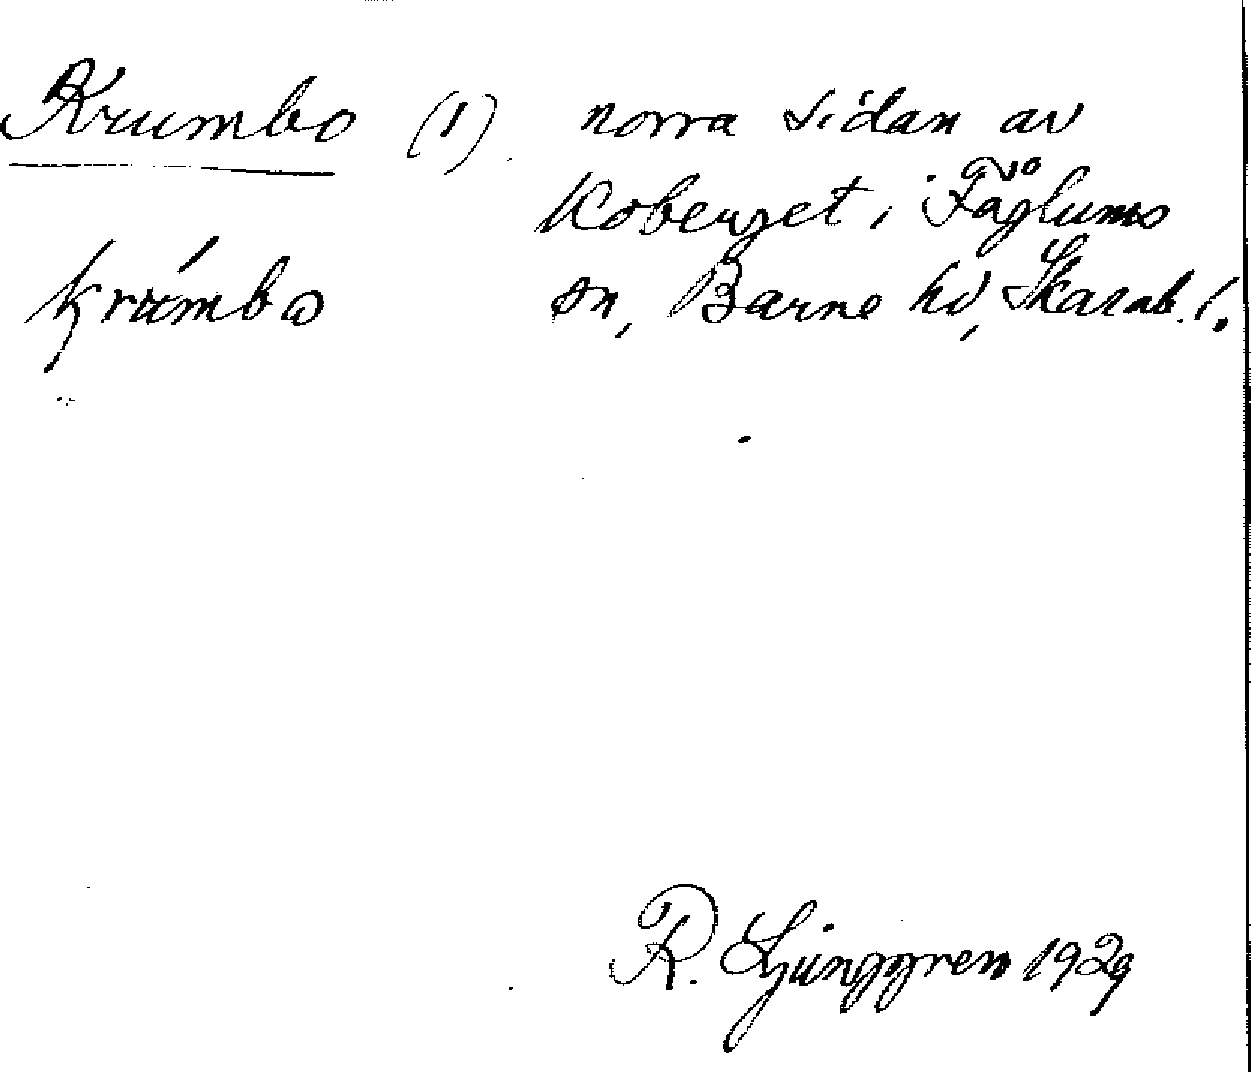 Krumbo (1) norra sidan av
Koberget i Fåglums
krúmbω sn, Barne hd, Skarab. l.
R. Ljunggren 1929